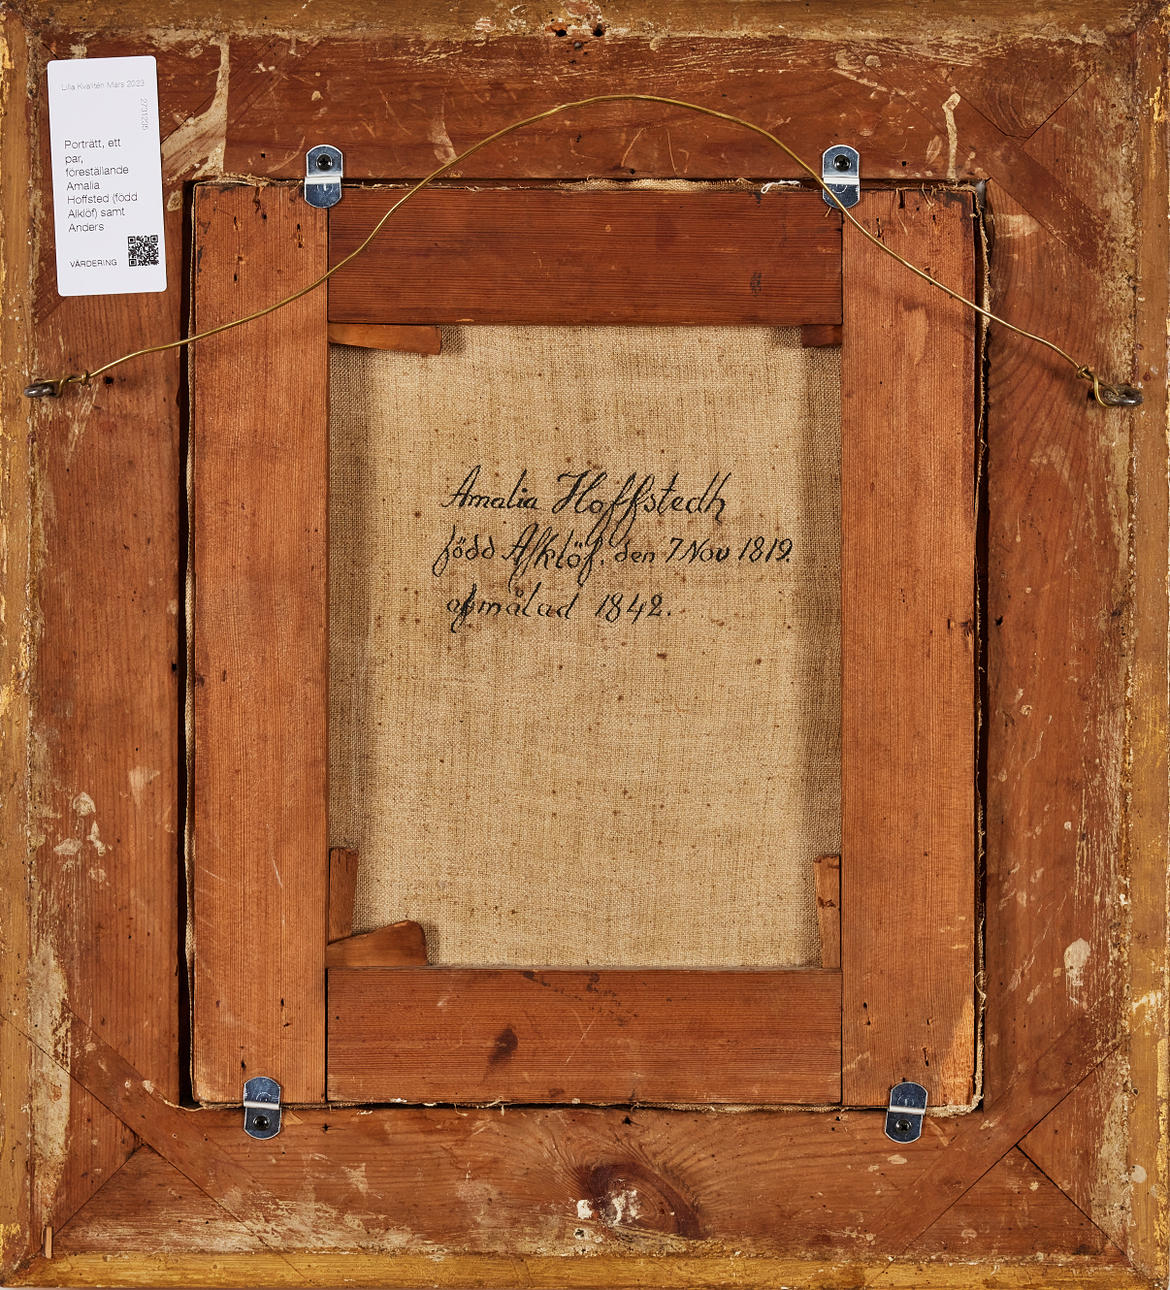 Lilla Kvalitén Mars 2023
2731235
Porträtt, ett
par,
föreställande
Amalia
Hoffsted (född
Alklöf) samt
Anders
VÄRDERING
Amalia Hoffstedh
född Afklöf. den 7 Nov 1819.
afmålad 1842.